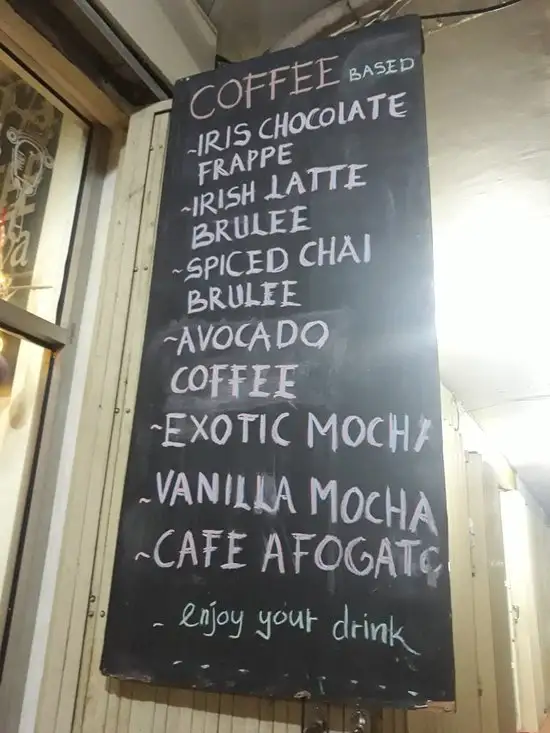 COFFEE BASED
~IRIS CHOCOLATE
FRAPPE
~IRISH LATTE
BRULEE
~SPICED CHAI
BRULEE
~AVOCADO
COFFEE
~EXOTIC MOCHA
~VANILLA MOCHA
~CAFE AFOGATO
- enjoy your drink